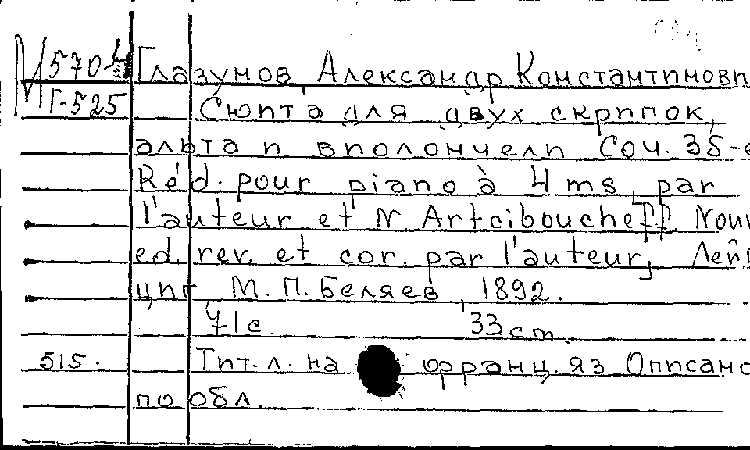 М 5704 Глазунов, Александр Константинови
Г-525 Сюита для двух скрипок,
альта и виолончели Соч. 35-е
Réd. pour piano à 4 ms par
l'auteur et N Artciboucheff Nouv
ed. rev. et cor. par l'auteur, Лейп
циг, М. П. Беляев, 1892.
71с 33 cm.
515. Тит. л. на франц. яз Описано
по обл.